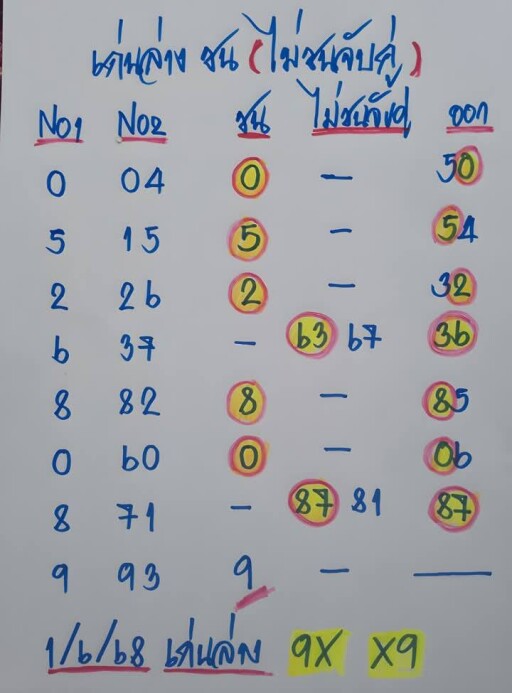 เด่นล่าง ชน (ไม่ชนจับคู่)
NO1 NO2 ชน ไม่ชนจับคู่ ออก
0 04 0 - 50
5 15 5 - 54
2 26 2 - 32
6 37 - 63 67 36
8 82 8 - 85
0 60 0 - 06
8 71 - 87 81 87
9 93 9 - —
1/6/68 เด่นล่าง 9X X9